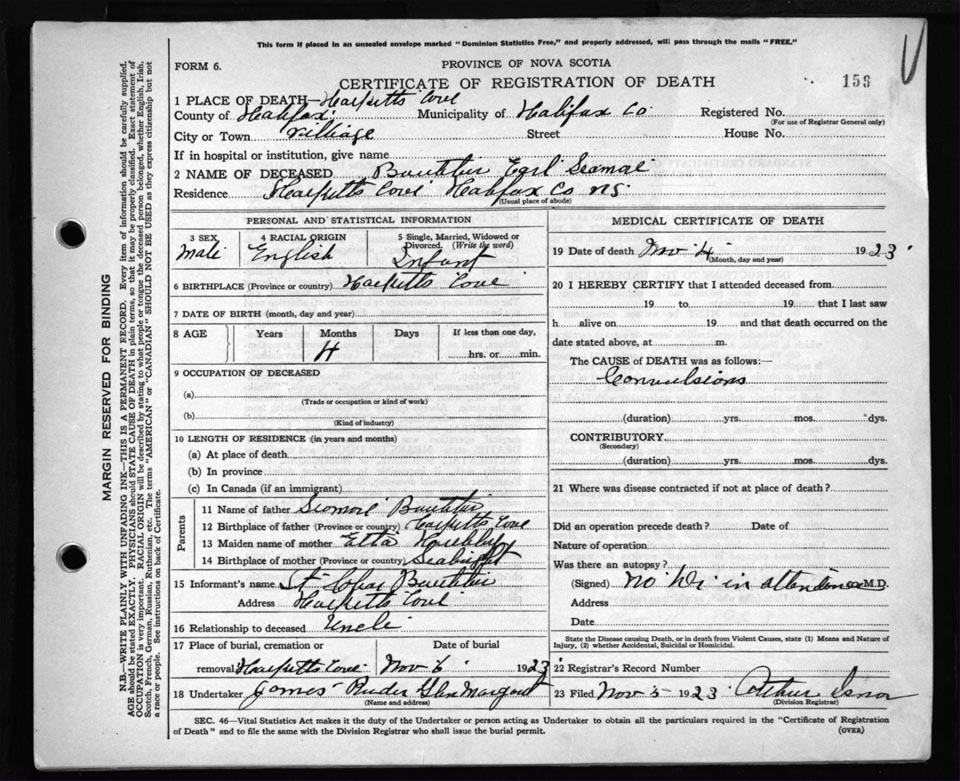 This form if placed in an unsealed envelope marked "Dominion Statistics Free," and properly addressed, will pass through the mails "FREE."
FORM 6.
PROVINCE OF NOVA SCOTIA
CERTIFICATE OF REGISTRATION OF DEATH
159
1 PLACE OF DEATH—Hacketts Cove
County of Halifax Municipality of Halifax Co Registered No.
(For use of Registrar General only)
City or Town Village Street House No.
If in hospital or institution, give name
2 NAME OF DECEASED Boutilier Earl Seamor
Residence Hacketts Cove Halifax Co NS.
(Usual place of abode)
PERSONAL AND STATISTICAL INFORMATION
3 SEX
Male
4 RACIAL ORIGIN
English
5 Single, Married, Widowed or Divorced. (Write the word)
Infant
6 BIRTHPLACE (Province or country) Hacketts Cove
7 DATE OF BIRTH (month, day and year)
8 AGE Years Months Days If less than one day,
4 hrs. or min.
9 OCCUPATION OF DECEASED
(a)
(Trade or occupation or kind of work)
(b)
(Kind of industry)
10 LENGTH OF RESIDENCE (in years and months)
(a) At place of death
(b) In province
(c) In Canada (if an immigrant)
Parents
11 Name of father Boutilier
12 Birthplace of father (Province or country) Hacketts Cove
13 Maiden name of mother Etta
14 Birthplace of mother (Province or country) Seabright
15 Informant's name St. Boutilier
Address Hacketts Cove
16 Relationship to deceased Uncle
17 Place of burial, cremation or Date of burial
removal Hacketts Cove Nov 6 1923
18 Undertaker James Glen Margaret
(Name and address)
MEDICAL CERTIFICATE OF DEATH
19 Date of death Nov 4 1923
(Month, day and year)
20 I HEREBY CERTIFY that I attended deceased from
19 to 19 that I last saw
h alive on 19 and that death occurred on the
date stated above, at m.
The CAUSE of DEATH was as follows:—
Convulsions
(duration) yrs. mos. dys.
CONTRIBUTORY
(Secondary)
(duration) yrs. mos. dys.
21 Where was disease contracted if not at place of death?
Did an operation precede death? Date of
Nature of operation
Was there an autopsy?
(Signed) No Dr in attendance M.D.
Address
Date
State the Disease causing Death, or in death from Violent Causes, state (1) Means and Nature of
Injury, (2) whether Accidental, Suicidal or Homicidal.
22 Registrar's Record Number
23 Filed Nov 5 1923 Arthur Isnor
(Division Registrar)
SEC. 46—Vital Statistics Act makes it the duty of the Undertaker or person acting as Undertaker to obtain all the particulars required in the "Certificate of Registration
of Death" and to file the same with the Division Registrar who shall issue the burial permit. (OVER)
MARGIN RESERVED FOR BINDING
N.B.—WRITE PLAINLY WITH UNFADING INK—THIS IS A PERMANENT RECORD. Every item of information should be carefully supplied.
AGE should be stated EXACTLY. PHYSICIANS should STATE CAUSE OF DEATH in plain terms, so that it may be properly classified. Exact statement of
OCCUPATION is very important. RACIAL ORIGIN will be described by stating to what people or tongue the deceased person belonged, whether English, Irish,
Scotch, French, German, Russian, Ruthenian, etc. The terms "AMERICAN" or "CANADIAN" SHOULD NOT BE USED as they express citizenship but not
a race or people. See instructions on back of Certificate.